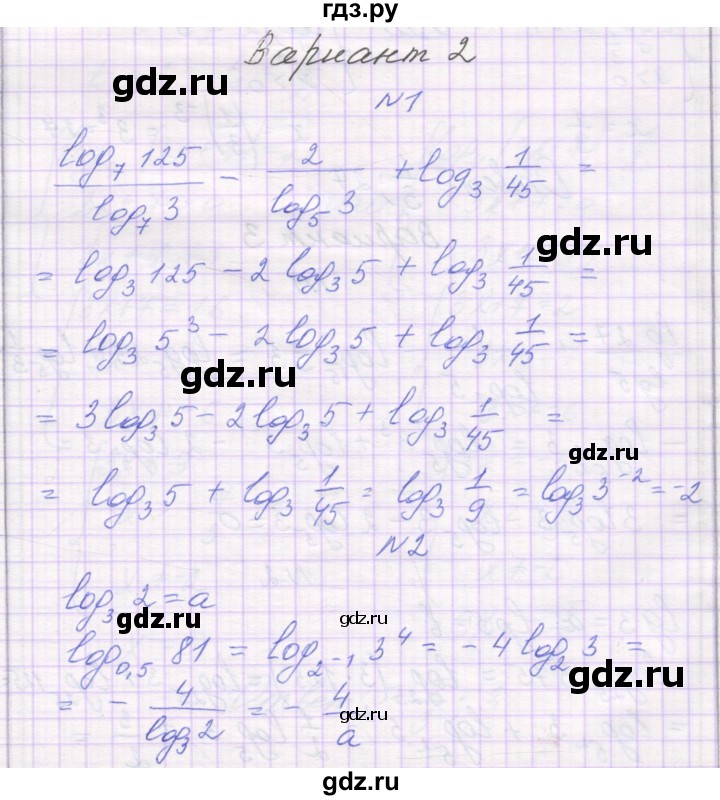 гдз.ру
Вариант 2
gdz.ru
№1
log₇ 125 / log₇ 3 − 2 / log₅ 3 + log₃ 1/45 =
gdz.ru
= log₃ 125 − 2 log₃ 5 + log₃ 1/45 =
= log₃ 5³ − 2 log₃ 5 + log₃ 1/45 =
gdz.ru
= 3 log₃ 5 − 2 log₃ 5 + log₃ 1/45 =
gdz.ru
= log₃ 5 + log₃ 1/45 = log₃ 1/9 = log₃ 3⁻² = −2
№2
log₃ 2 = a
gdz.ru
gdz.ru
log₀,₅ 81 = log₂₋₁ 3⁴ = −4 log₂ 3 =
gdz.ru
= − 4 / log₃ 2 = − 4 / a
gdz.ru